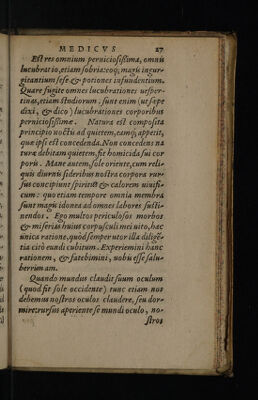 MEDICVS 27
Est res omnium perniciosissima, omnis
lucubratio, etiam sobria: eoq; magis ingur-
gitantium sese & potiones infundentium.
Quare fugite omnes lucubrationes uesper-
tinas, etiam studiorum. sunt enim (ut sæpe
dixi, & dico) lucubrationes corporibus
perniciosissimæ. Natura est composita
principio noctu ad quietem, eamq; appetit,
quæ ipsi est concedenda. Non concedens na
turæ debitam quietem, fit homicida sui cor
poris. Mane autem, sole oriente, cum reli-
quis diurnis sideribus nostra corpora rur-
sus concipiunt spiritũ & calorem uiuifi-
cum: quo etiam tempore omnia membra
sunt magis idonea ad omnes labores susti-
nendos. Ego multos periculosos morbos
& miserias huius corpusculi mei uito, hac
unica ratione, quòd semper utor illa diligẽ-
tia citò eundi cubitum. Experiemini hanc
rationem, & fatebimini, uobis esse salu-
berrimam.
Quando mundus claudit suum oculum
(quod fit sole occidente) tunc etiam nos
debemus nostros oculos claudere, seu dor-
mire: rursus aperiente se mundi oculo, no-
stros